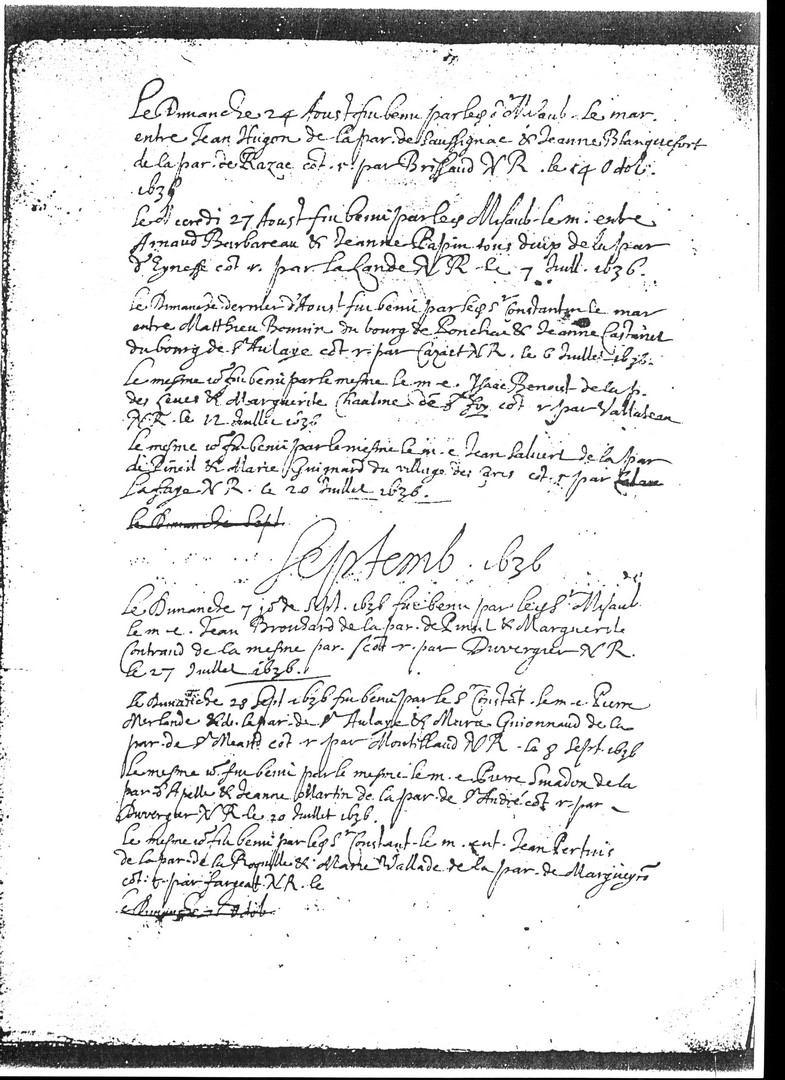 Le Dimanche 24 Aoust fut beni par le Sr Mizaub. Le mar.
entre Jean Hugon de la par. de Saussignac & Jeanne Blanquefort
de la par. de Razac cot. r. par Brissaud N R. le 14
1636
Le Mercredi 27 Aoust fut beni par le Sr Misaub. le m. entre
Arnaud Barbareau & Jeanne Papin tous deux de la par
d'Eynesse cot r. par la Lande N R. le 7 Juill. 1636.
Le Dimanche dernier d'Aoust fut beni par le Sr Constantin le mar
entre Matthieu Bonnin du bourg de & Jeanne Castanet
du bourg de St Aulaye cot. r. par N R. le 6 Juillet 1636.
Le mesme jor fut beni par le mesme le m. e. Isaac Benoist de la p.
des Leves & Marguerite de Ste Foy cot r par Vallateau
N R. le 12 Juillet 1636
Le mesme jor fut beni par le mesme le m. e Jean de la par
de Pineil & Marie Guignard du village des cot. r. par
Lafaye N R. le 20 Juillet 1636.
le Dimanche Sept.
Septemb. 1636
Le Dimanche 7 jor de Sept. 1636 fut beni par le Sr Misaub
le m. e. Jean Broussard de la par. de Pineil & Marguerite
Contraud de la mesme par. cot r. par Duvergier N R.
le 27 Juillet 1636.
Le Dimanche 28 Sept 1636 fut beni par le Sr Constāt. le m. e Pierre
Merlande de la par. de St Aulaye & Guionnaud de la
par. de St Meard cot r par Montillaud N R. le 8 Sept. 1636
Le mesme jor fut beni par le mesme le m. e Pierre de la
par. d'Apelle & Jeanne Martin de la par. de St André cot r. par
Duvergier N R. le 20 Juillet 1636.
Le mesme jor fut beni par le Sr Constant. le m. ent. Jean Pertuis
de la par. de la Roquille & Marie Vallade de la par. de Margueyrō
cot. r. par Fargeat N R. le